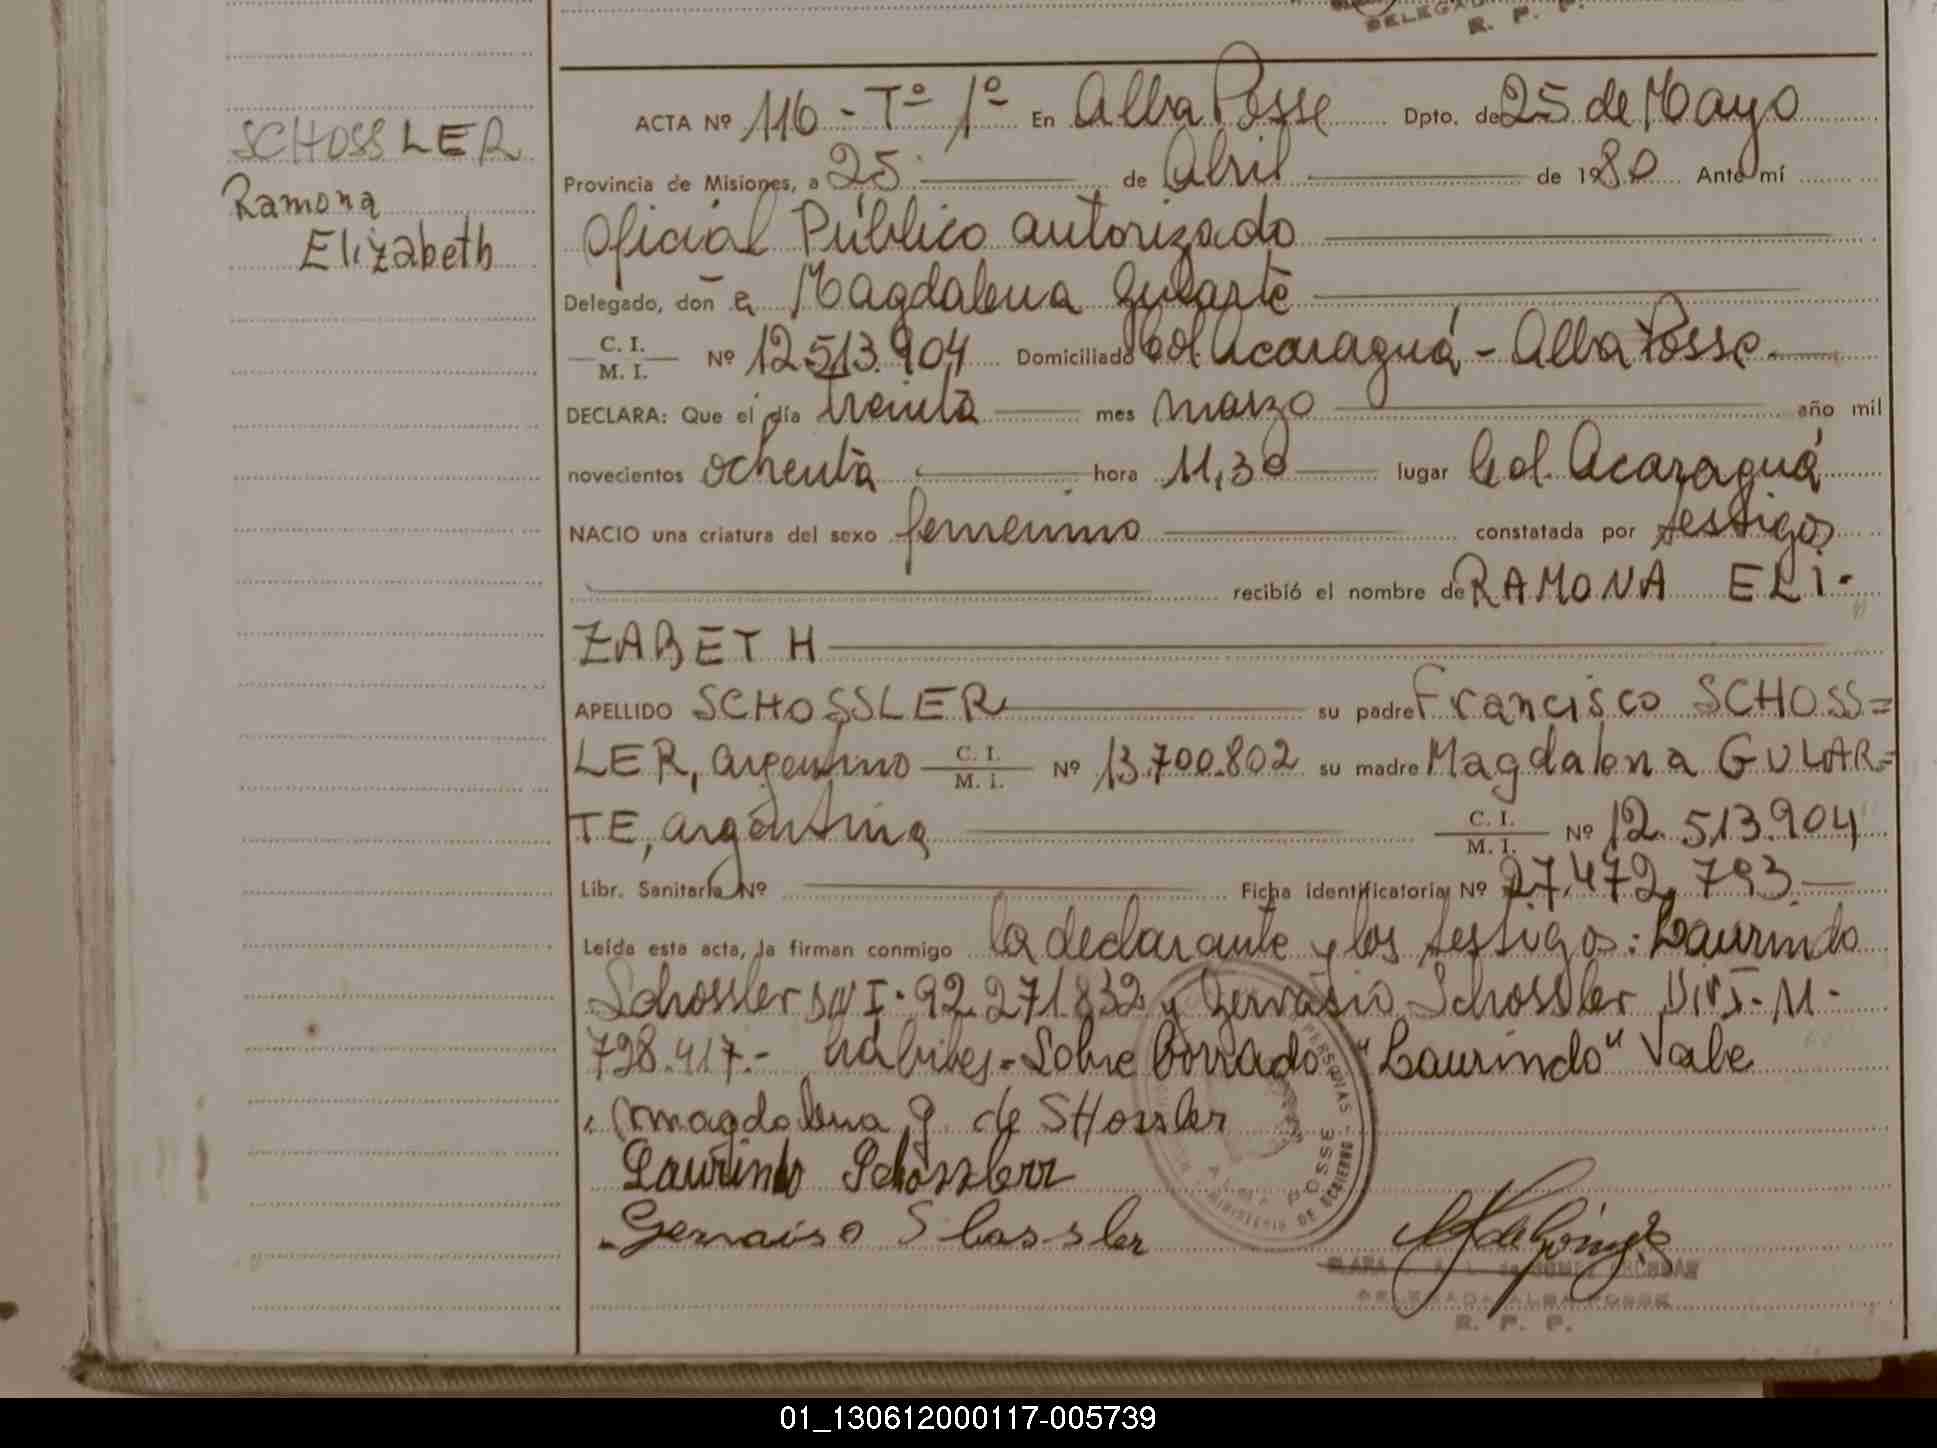 DELEGAD
R. P. P.
SCHOSSLER
Ramona
Elizabeth
ACTA Nº 116 - Tº 1º En Alba Posse Dpto. de 25 de Mayo
Provincia de Misiones, a 25 de Abril de 1980 Ante mí
Oficial Público autorizado
Delegado, don a Magdalena Gularte
C. I.
M. I.
Nº 12.513.904 Domiciliado Col. Acaraguá - Alba Posse
DECLARA: Que el día treinta mes marzo año mil
novecientos ochenta hora 11,30 lugar Col. Acaraguá
NACIO una criatura del sexo femenino constatada por testigos
recibió el nombre de RAMONA ELI-
ZABETH
APELLIDO SCHOSSLER su padre Francisco SCHOSS=
LER, argentino C. I. M. I. Nº 13.700.802 su madre Magdalena GULAR=
TE, argentina C. I. M. I. Nº 12.513.904
Libr. Sanitaria Nº Ficha identificatoria Nº 27.472.793
Leída esta acta, la firman conmigo la declarante y los testigos: Laurindo
Schossler DNI. 92.271.832 y Gervasio Schossler DNI. 11.
798.417.- hábiles.- Sobre borrado "Laurindo" Vale
magdalena g. de SHossler
Laurindo Schossslerr
Gervaiso Slossler
PERSONAS
ALBA POSSE
MINISTERIO DE GOBIERNO
DELEGADA ALBA POSSE
R. P. P.
01_130612000117-005739